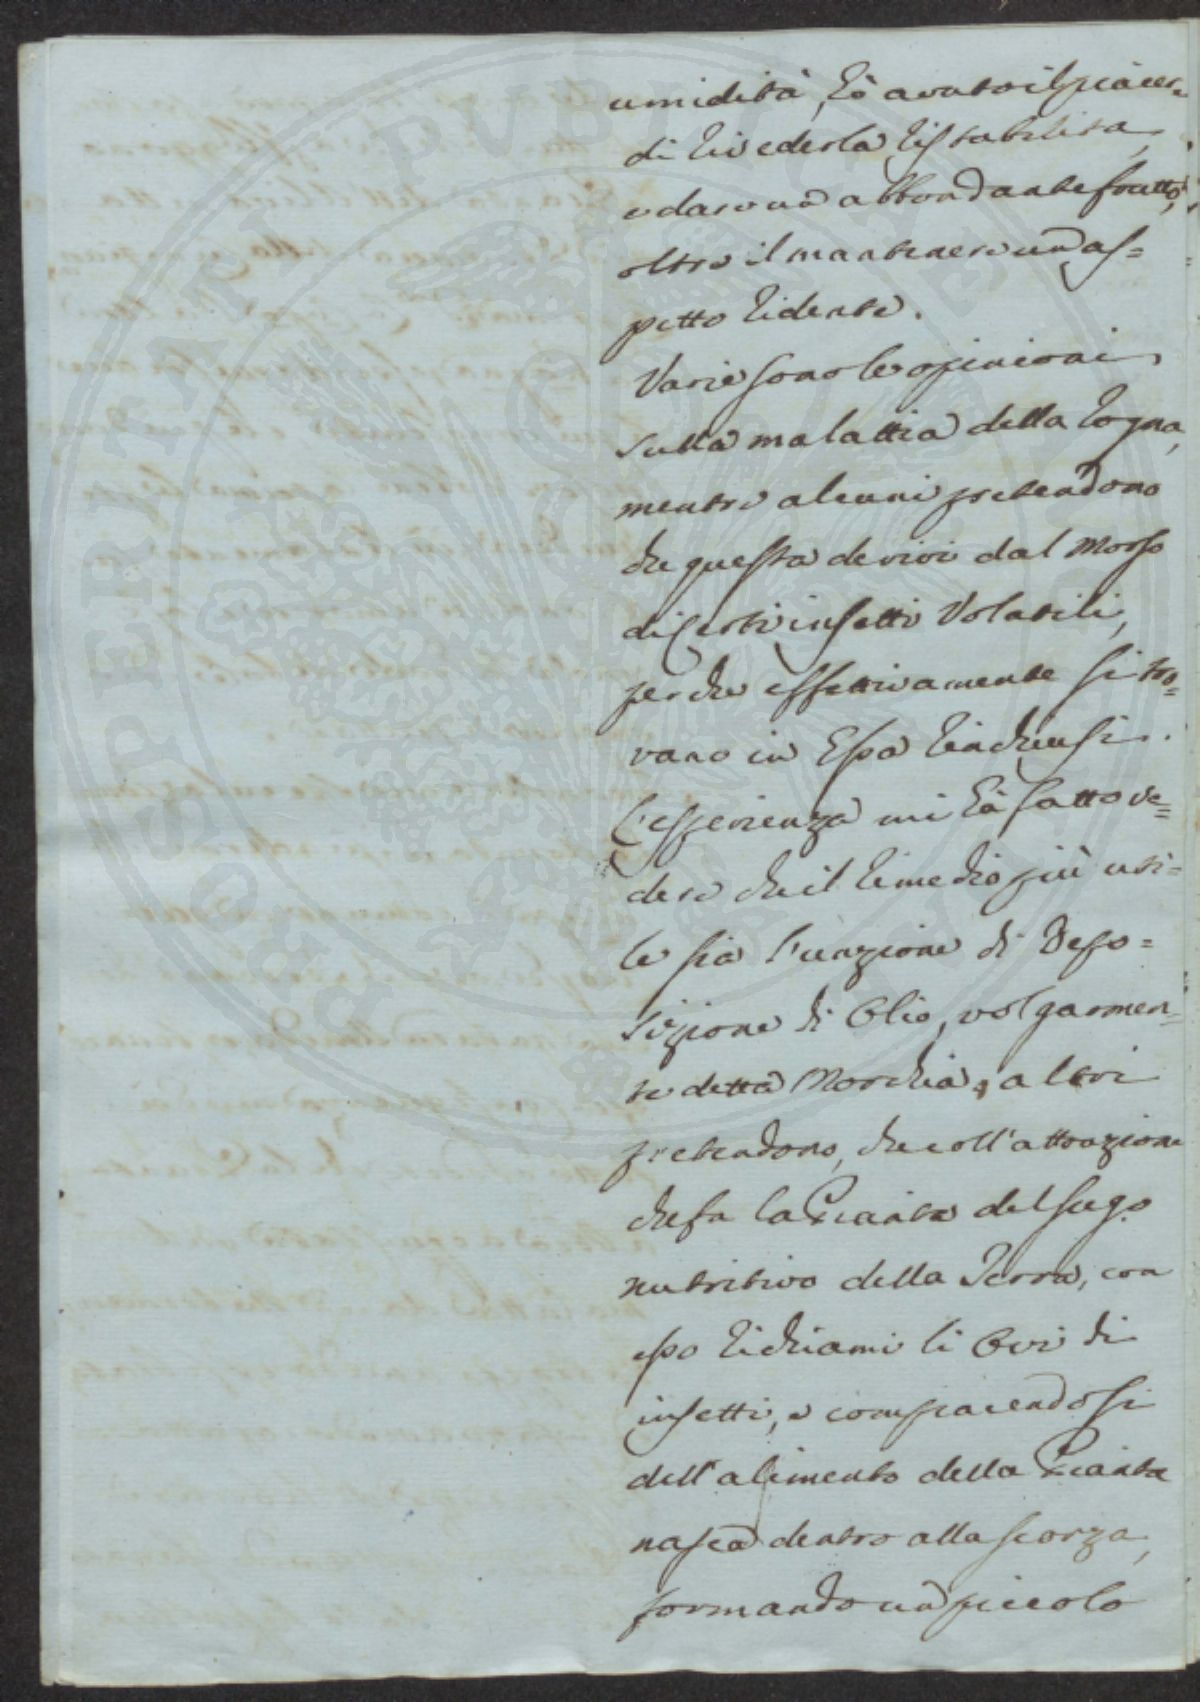 umidità, hò avuto il piacer=
di rivederla ristabilita,
e dare un abbondante frutto,
oltre il mantenere un as=
petto ridente.
Varie sono le opinioni
sulla malattia della rogna,
mentre alcuni pretendono
che questa derivi dal Morso
di certi insetti Volatili,
perche effettivamente si tro=
vano in Essa rinchiusi.
L'esperienza mi hà fatto ve=
dere che il rimedio più uti=
le sia l'unzione di Depo=
sizione di Olio, volgarmen=
te detta Morchia, altri
pretendono, che coll'attrazione
che fa la Pianta del sugo
nutritivo della Terra, con
esso richiami li Ovi di
insetti, e compiacendosi
dell'alimento della Pianta
nasca dentro alla scorza,
formando un piccolo
PROSPERITATI PVBLICAE AVGENDAE